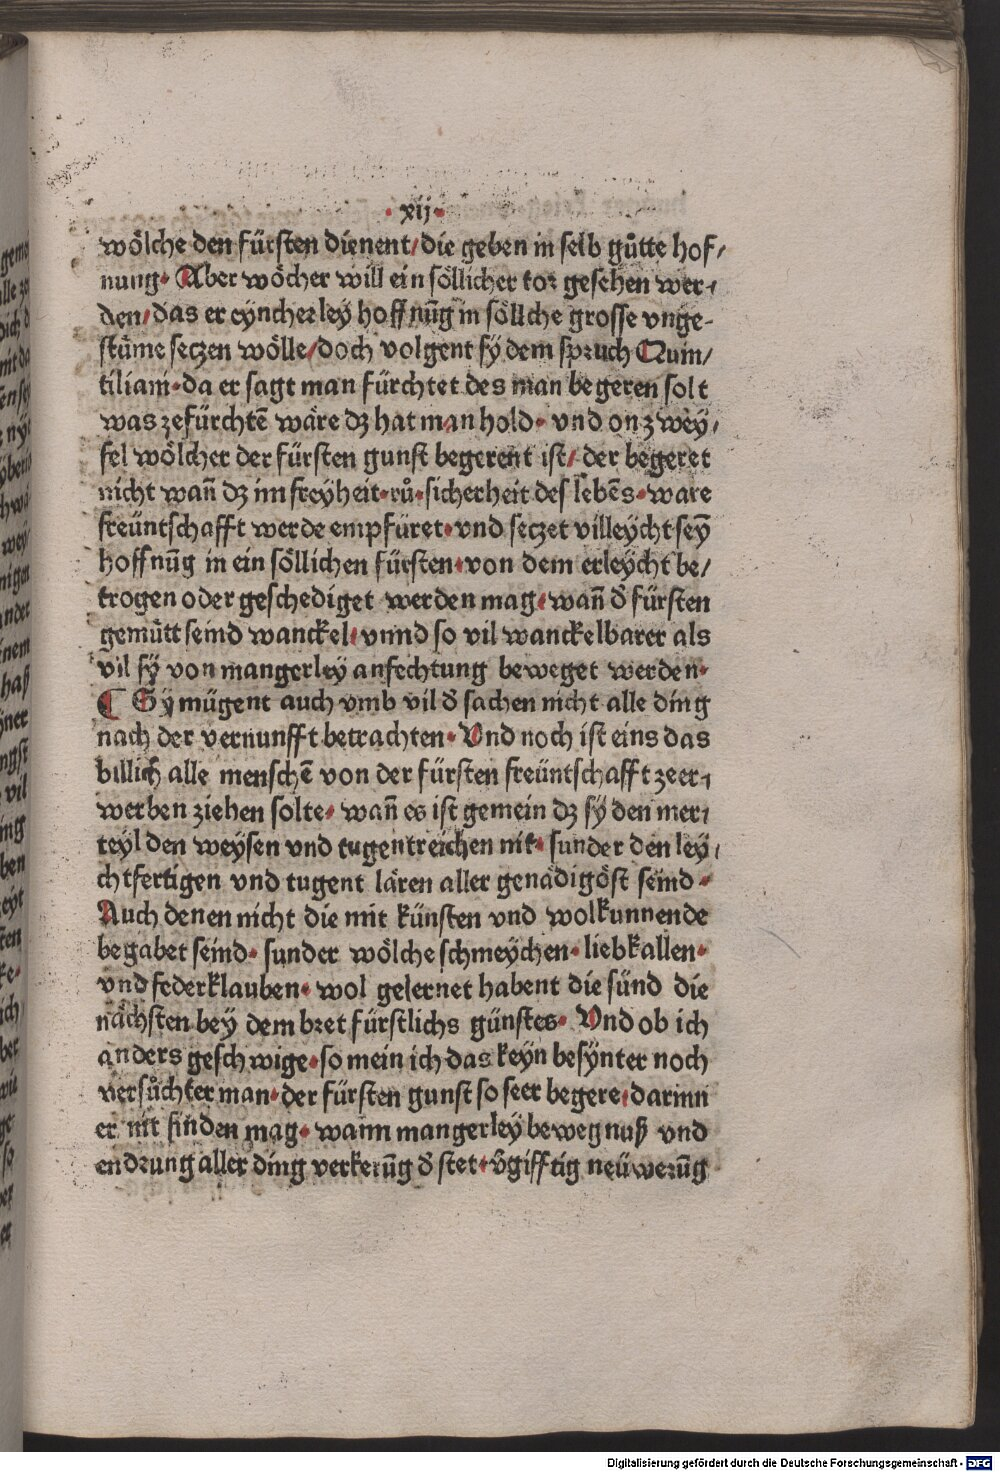 ·xij·
wölche den fürsten dienent/die geben in selb gůtte hof/
nung· Aber wöcher will ein söllicher tor gesehen wer/
den/das er eyncherley hoffnūg in söllche grosse vnge-
stüme seczen wölle/doch volgent sÿ dem spruch Quin/
tiliani·da er sagt man fürchtet des man begeren solt
was zefürchtē wäre dz hat man hold· vnd on zwey/
fel wölcher der fürsten gunst begerent ist/ der begeret
nicht wañ dz im freyheit·rů·sicherheit des lebēs·ware
freüntschafft werde empfüret·vnd seczet villeycht seÿ
hoffnūg in ein söllichen fürsten·von dem er leycht be/
trogen oder geschediget werden mag·wañ d̄ fürsten
gemütt seind wanckel·vnnd so vil wanckelbarer als
vil sÿ von mangerley anfechtung beweget werden·
¶ Sÿ mügent auch vmb vil d̄ sachen nicht alle ding
nach der vernunfft betrachten· Vnd noch ist eins das
billich alle menschē von der fürsten freüntschafft zeer/
werben ziehen solte· wañ es ist gemein dz sÿ den mer/
teyl den weysen vnd tugentreichen nit· sunder den ley/
chtfertigen vnd tugent lären aller genädigöst seind·
Auch denen nicht die mit künsten vnd wolkunnende
begabet seind· sunder wölche schmeychen· liebkallen·
vnd federklauben· wol gelernet habent die sünd die
nächsten bey dem bret fürstlichs günstes· Vnd ob ich
anders geschwige·so mein ich das keyn besynter noch
versůchter man·der fürsten gunst so seer begere·darinn
er nit finden mag· wann mangerley bewegnuß vnd
endrung aller ding verkerūg d̄ stet·v̄gifftig neüwerūg
Digitalisierung gefördert durch die Deutsche Forschungsgemeinschaft - DFG